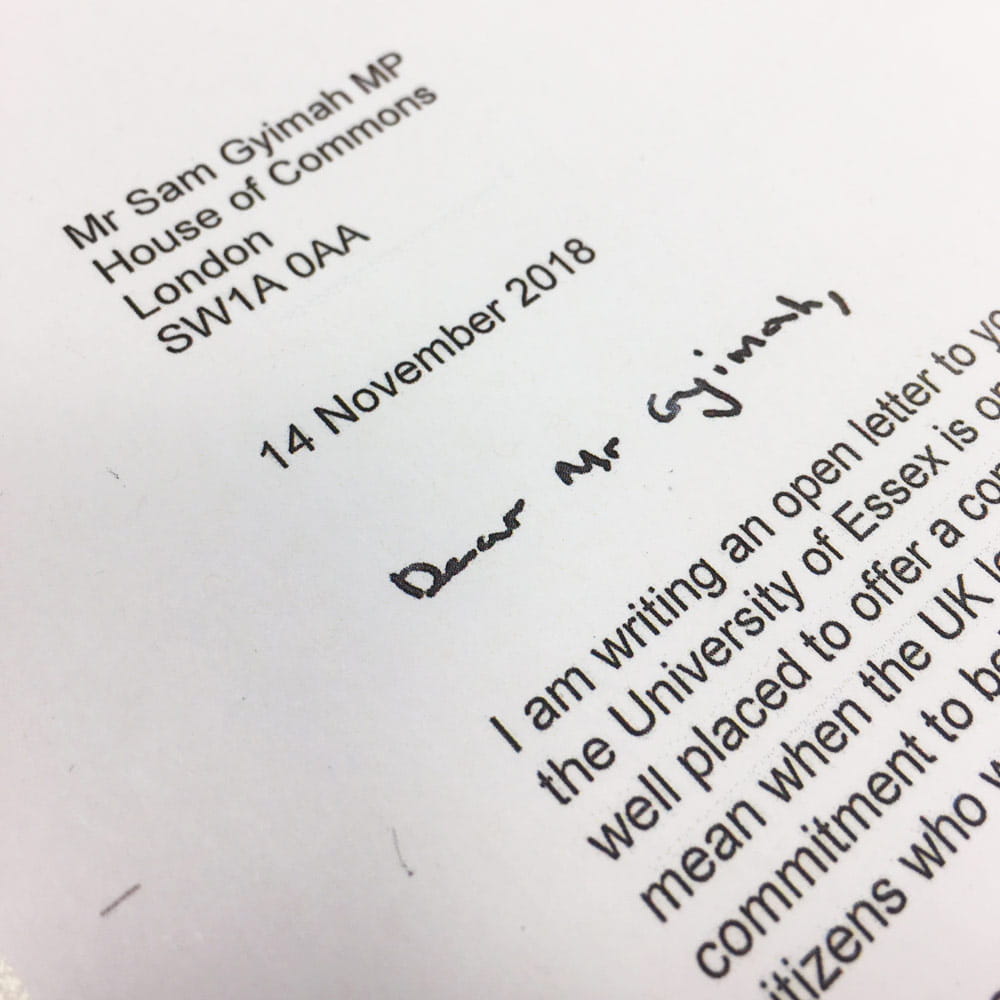 Mr Sam Gyimah MP
House of Commons
London
SW1A 0AA
14 November 2018
Dear Mr Gyimah,
I am writing an open letter to
the University of Essex is
well placed to offer a
mean when the UK
commitment to
who